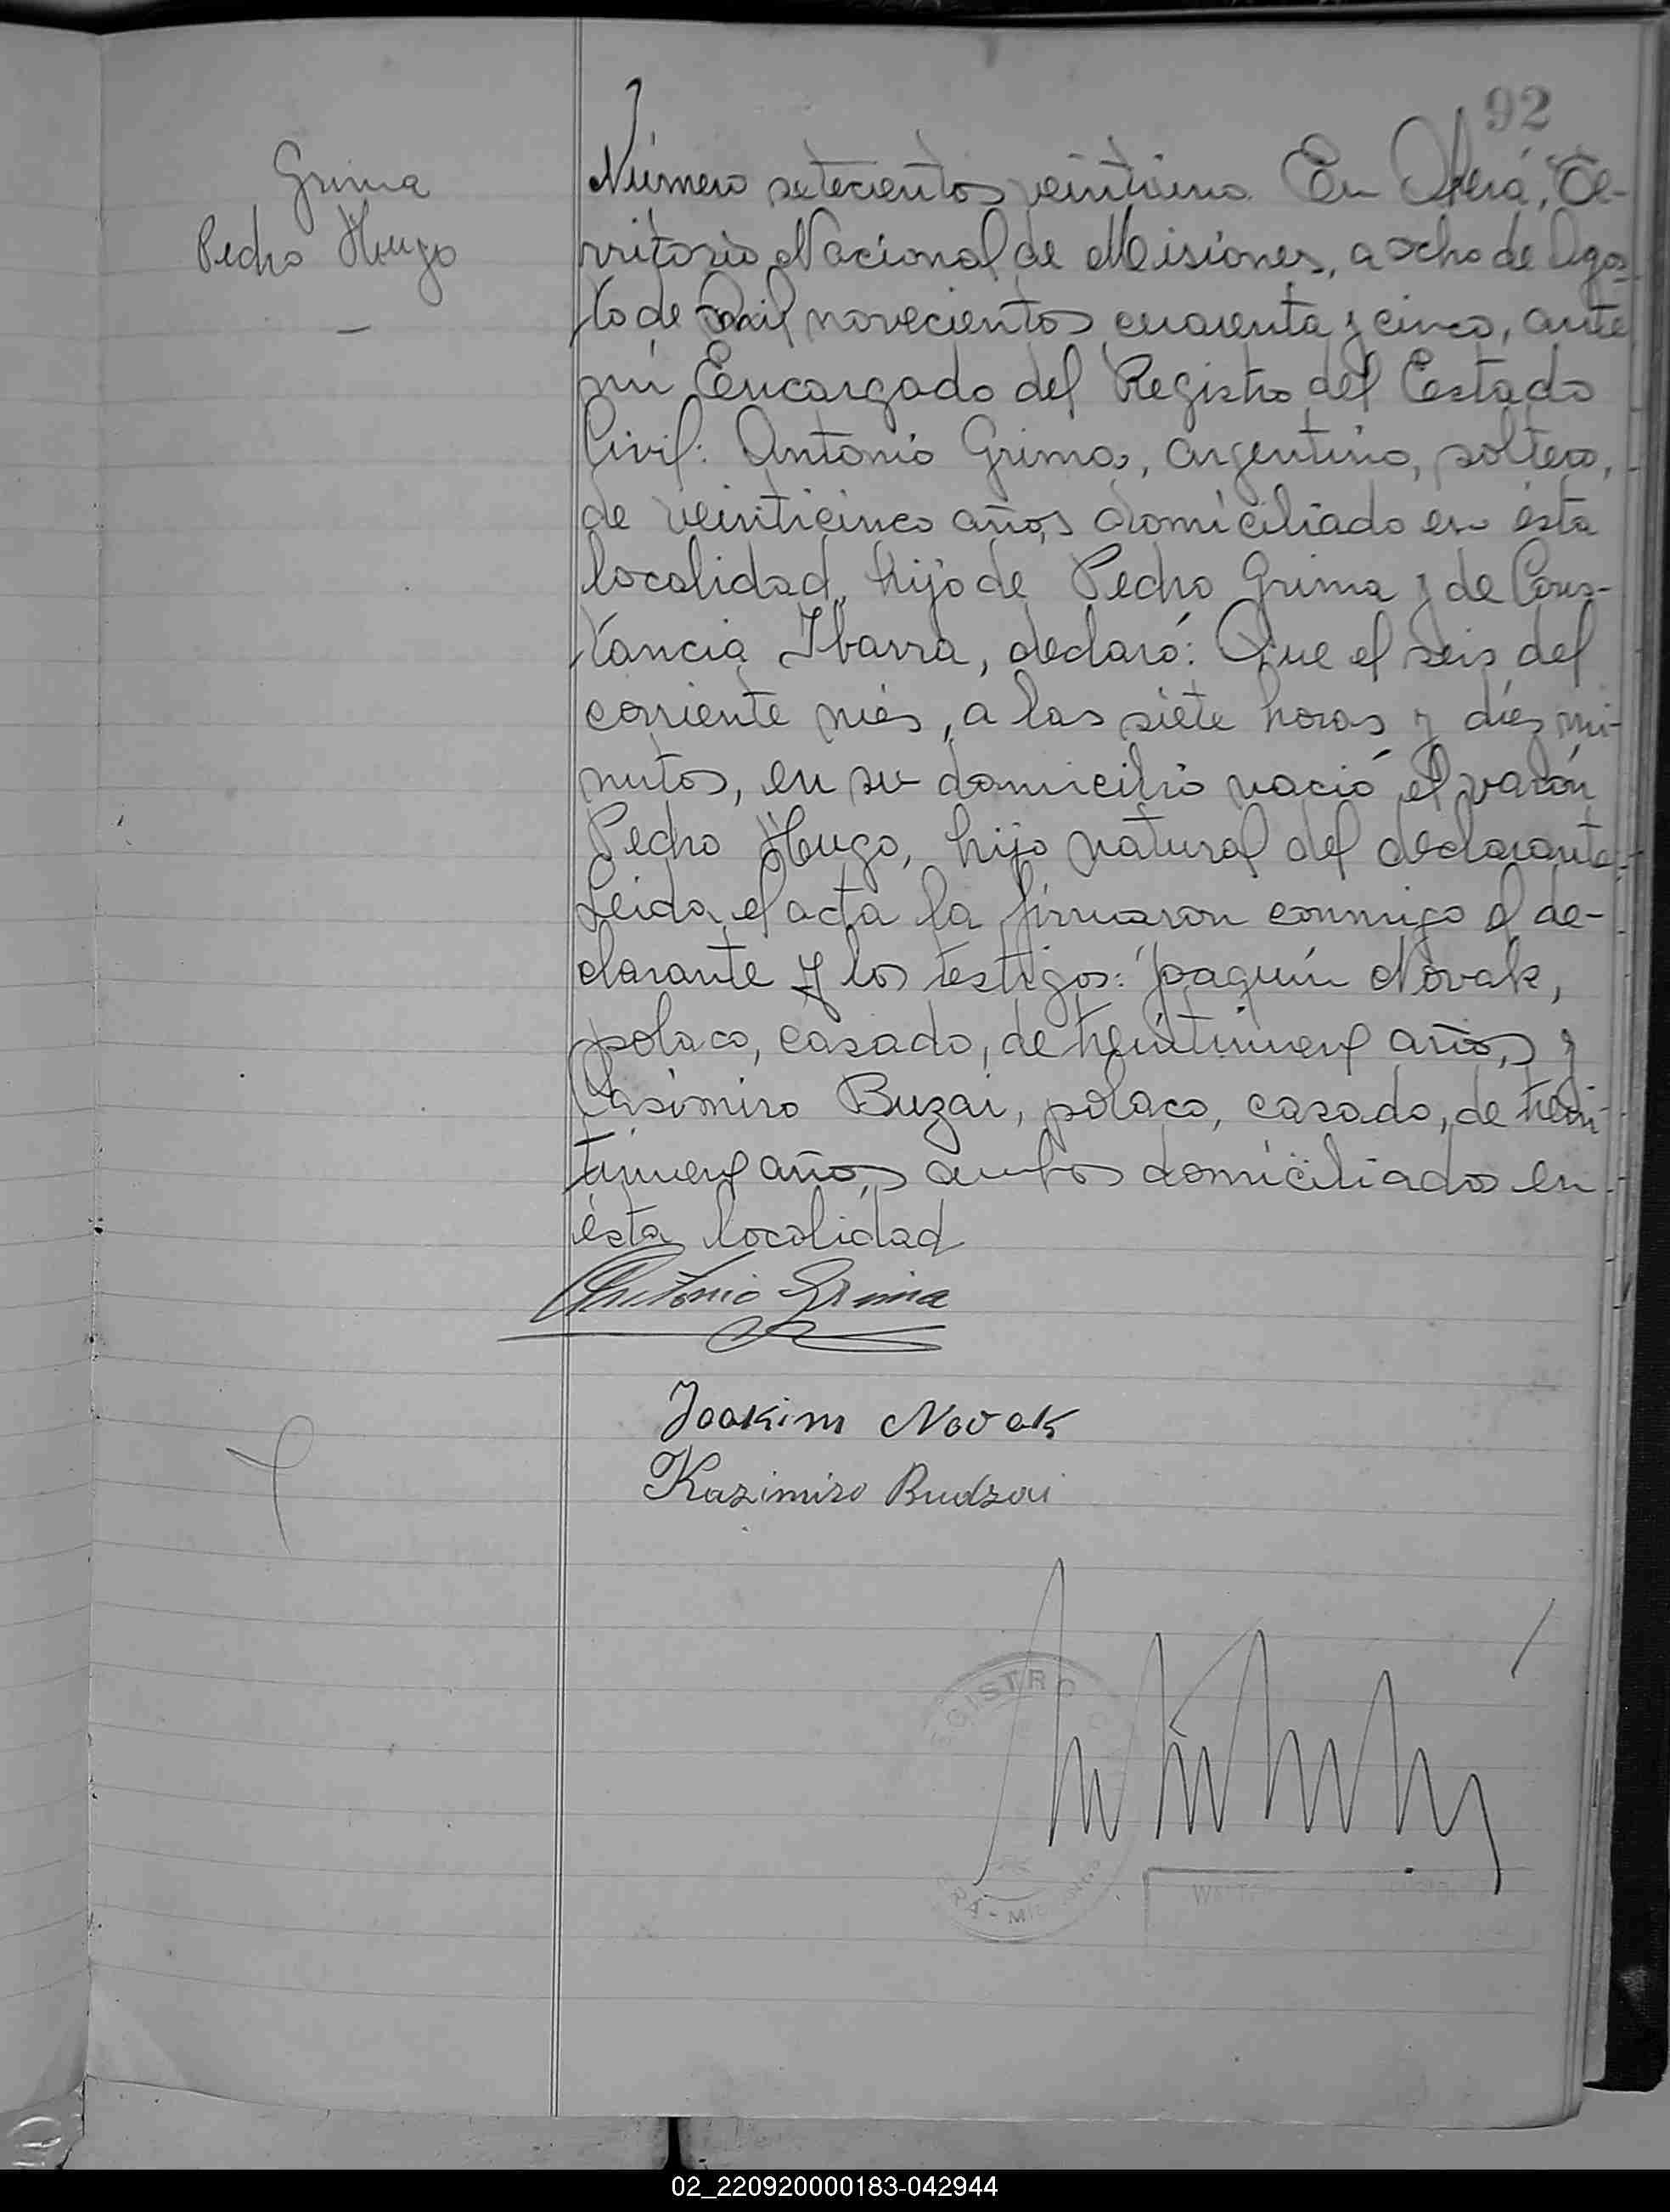 92
Grima
Pedro Hugo
Número setecientos veintiuno. En Oberá, Te-
rritorio Nacional de Misiones, a ocho de Agos-
to de mil novecientos cuarenta y cinco, ante
mi Encargado del Registro del Estado
Civil: Antonio Grima, argentino, soltero,
de veinticinco años, domiciliado en ésta
localidad, hijo de Pedro Grima y de Cons-
tancia Ibarra, declaró: Que el seis del
corriente més, a las siete horas y diés mi-
nutos, en su domicilio nació el varón
Pedro Hugo, hijo natural del declarante.
Leida el acta la firmaron conmigo el de-
clarante y los testigos: Joaquín Novak,
polaco, casado, de años, y
Casimiro Buzai, polaco, casado, de
años, ambos domiciliados en
ésta localidad
Antonio Grima
Joakim Novak
Kazimiro Budzai
REGISTRO
RÁ - MISIONES
02_220920000183-042944